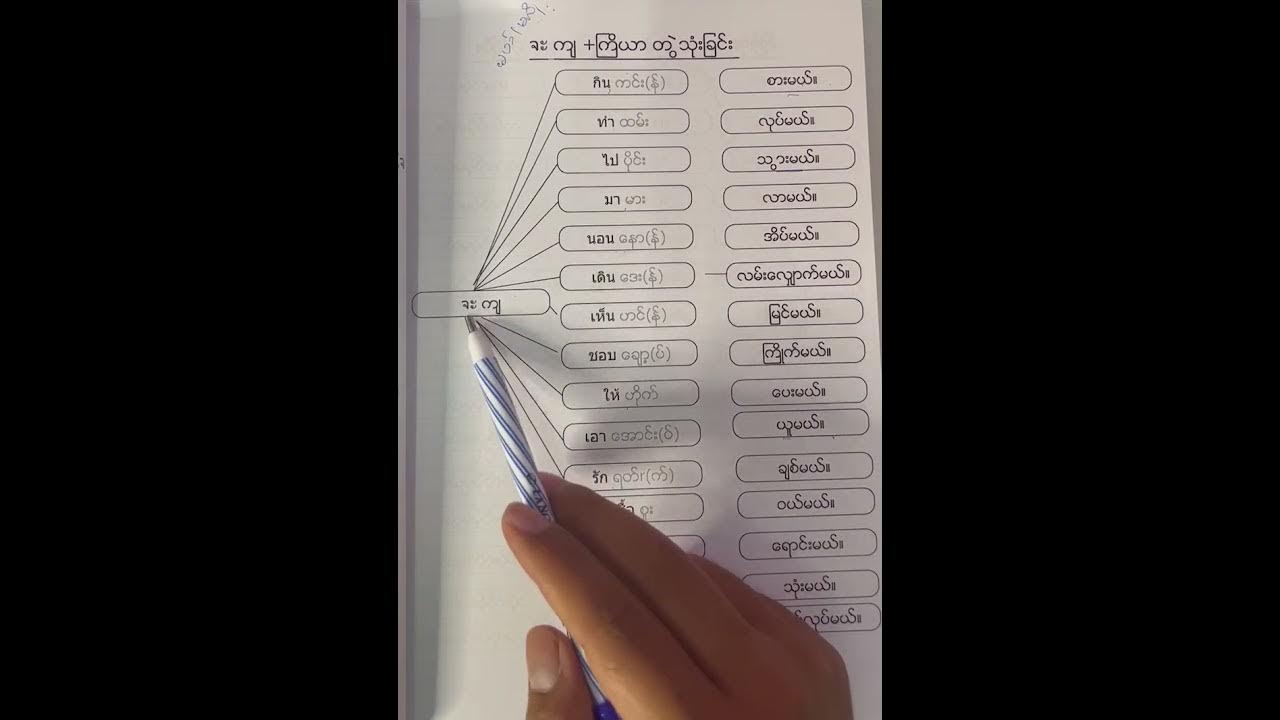 จะ ကျ +ကြိယာ တွဲသုံးခြင်း
กิน ကင်း(န်) စားမယ်။
ทำ ထမ်း လုပ်မယ်။
ไป ပိုင်း သွားမယ်။
มา မား လာမယ်။
นอน နော(န်) အိပ်မယ်။
เดิน ဒေး(န်) လမ်းလျှောက်မယ်။
จะ ကျ
เห็น ဟင်(န်) မြင်မယ်။
ชอบ ချော့(ပ်) ကြိုက်မယ်။
ให้ ဟိုက် ပေးမယ်။
เอา အောင်း(ဝ်) ယူမယ်။
รัก ရတ်r(က်) ချစ်မယ်။
စူး ဝယ်မယ်။
ရောင်းမယ်။
သုံးမယ်။
လုပ်မယ်။